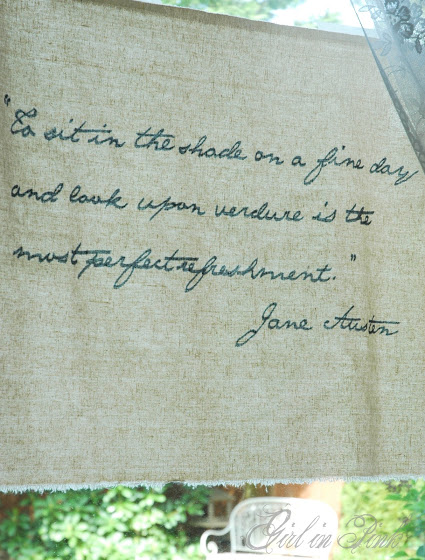 "To sit in the shade on a fine day
and look upon verdure is the
most perfect refreshment."
Jane Austen
Girl in Pink